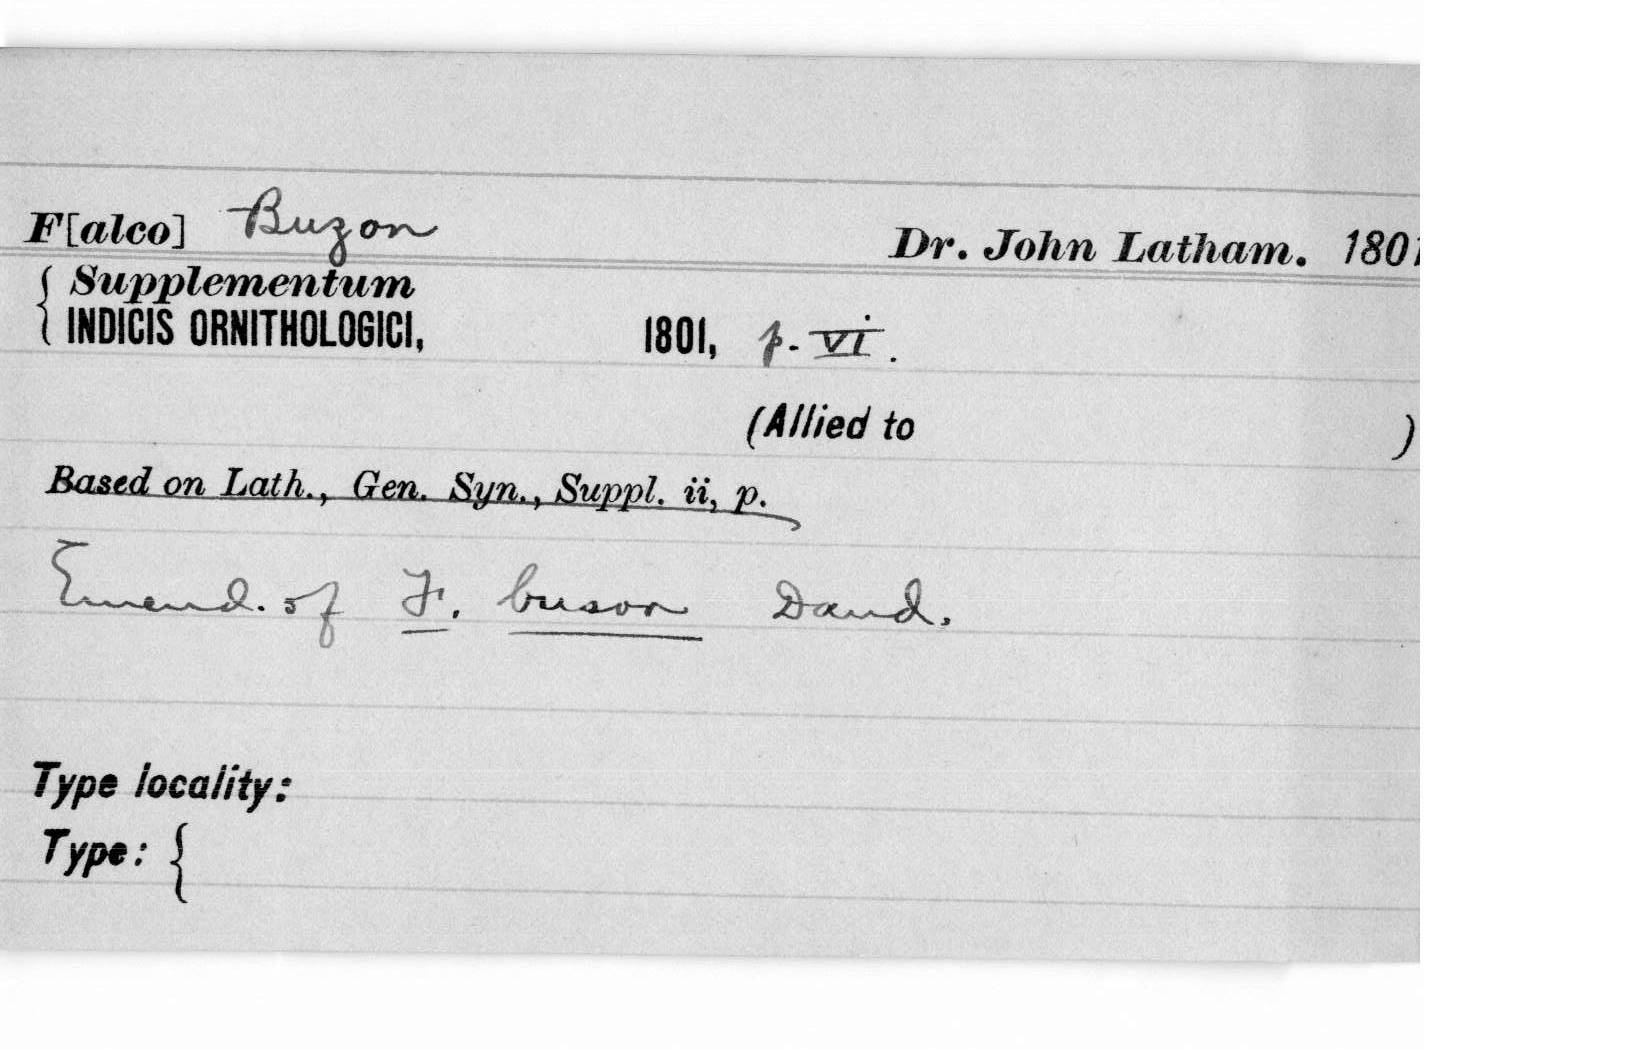 F[alco] Buzon Dr. John Latham. 1801
{ Supplementum
INDICIS ORNITHOLOGICI, 1801, p. vi.
(Allied to )
Based on Lath., Gen. Syn., Suppl. ii, p.
Emend. of F. buson Daud.
Type locality:
Type: {